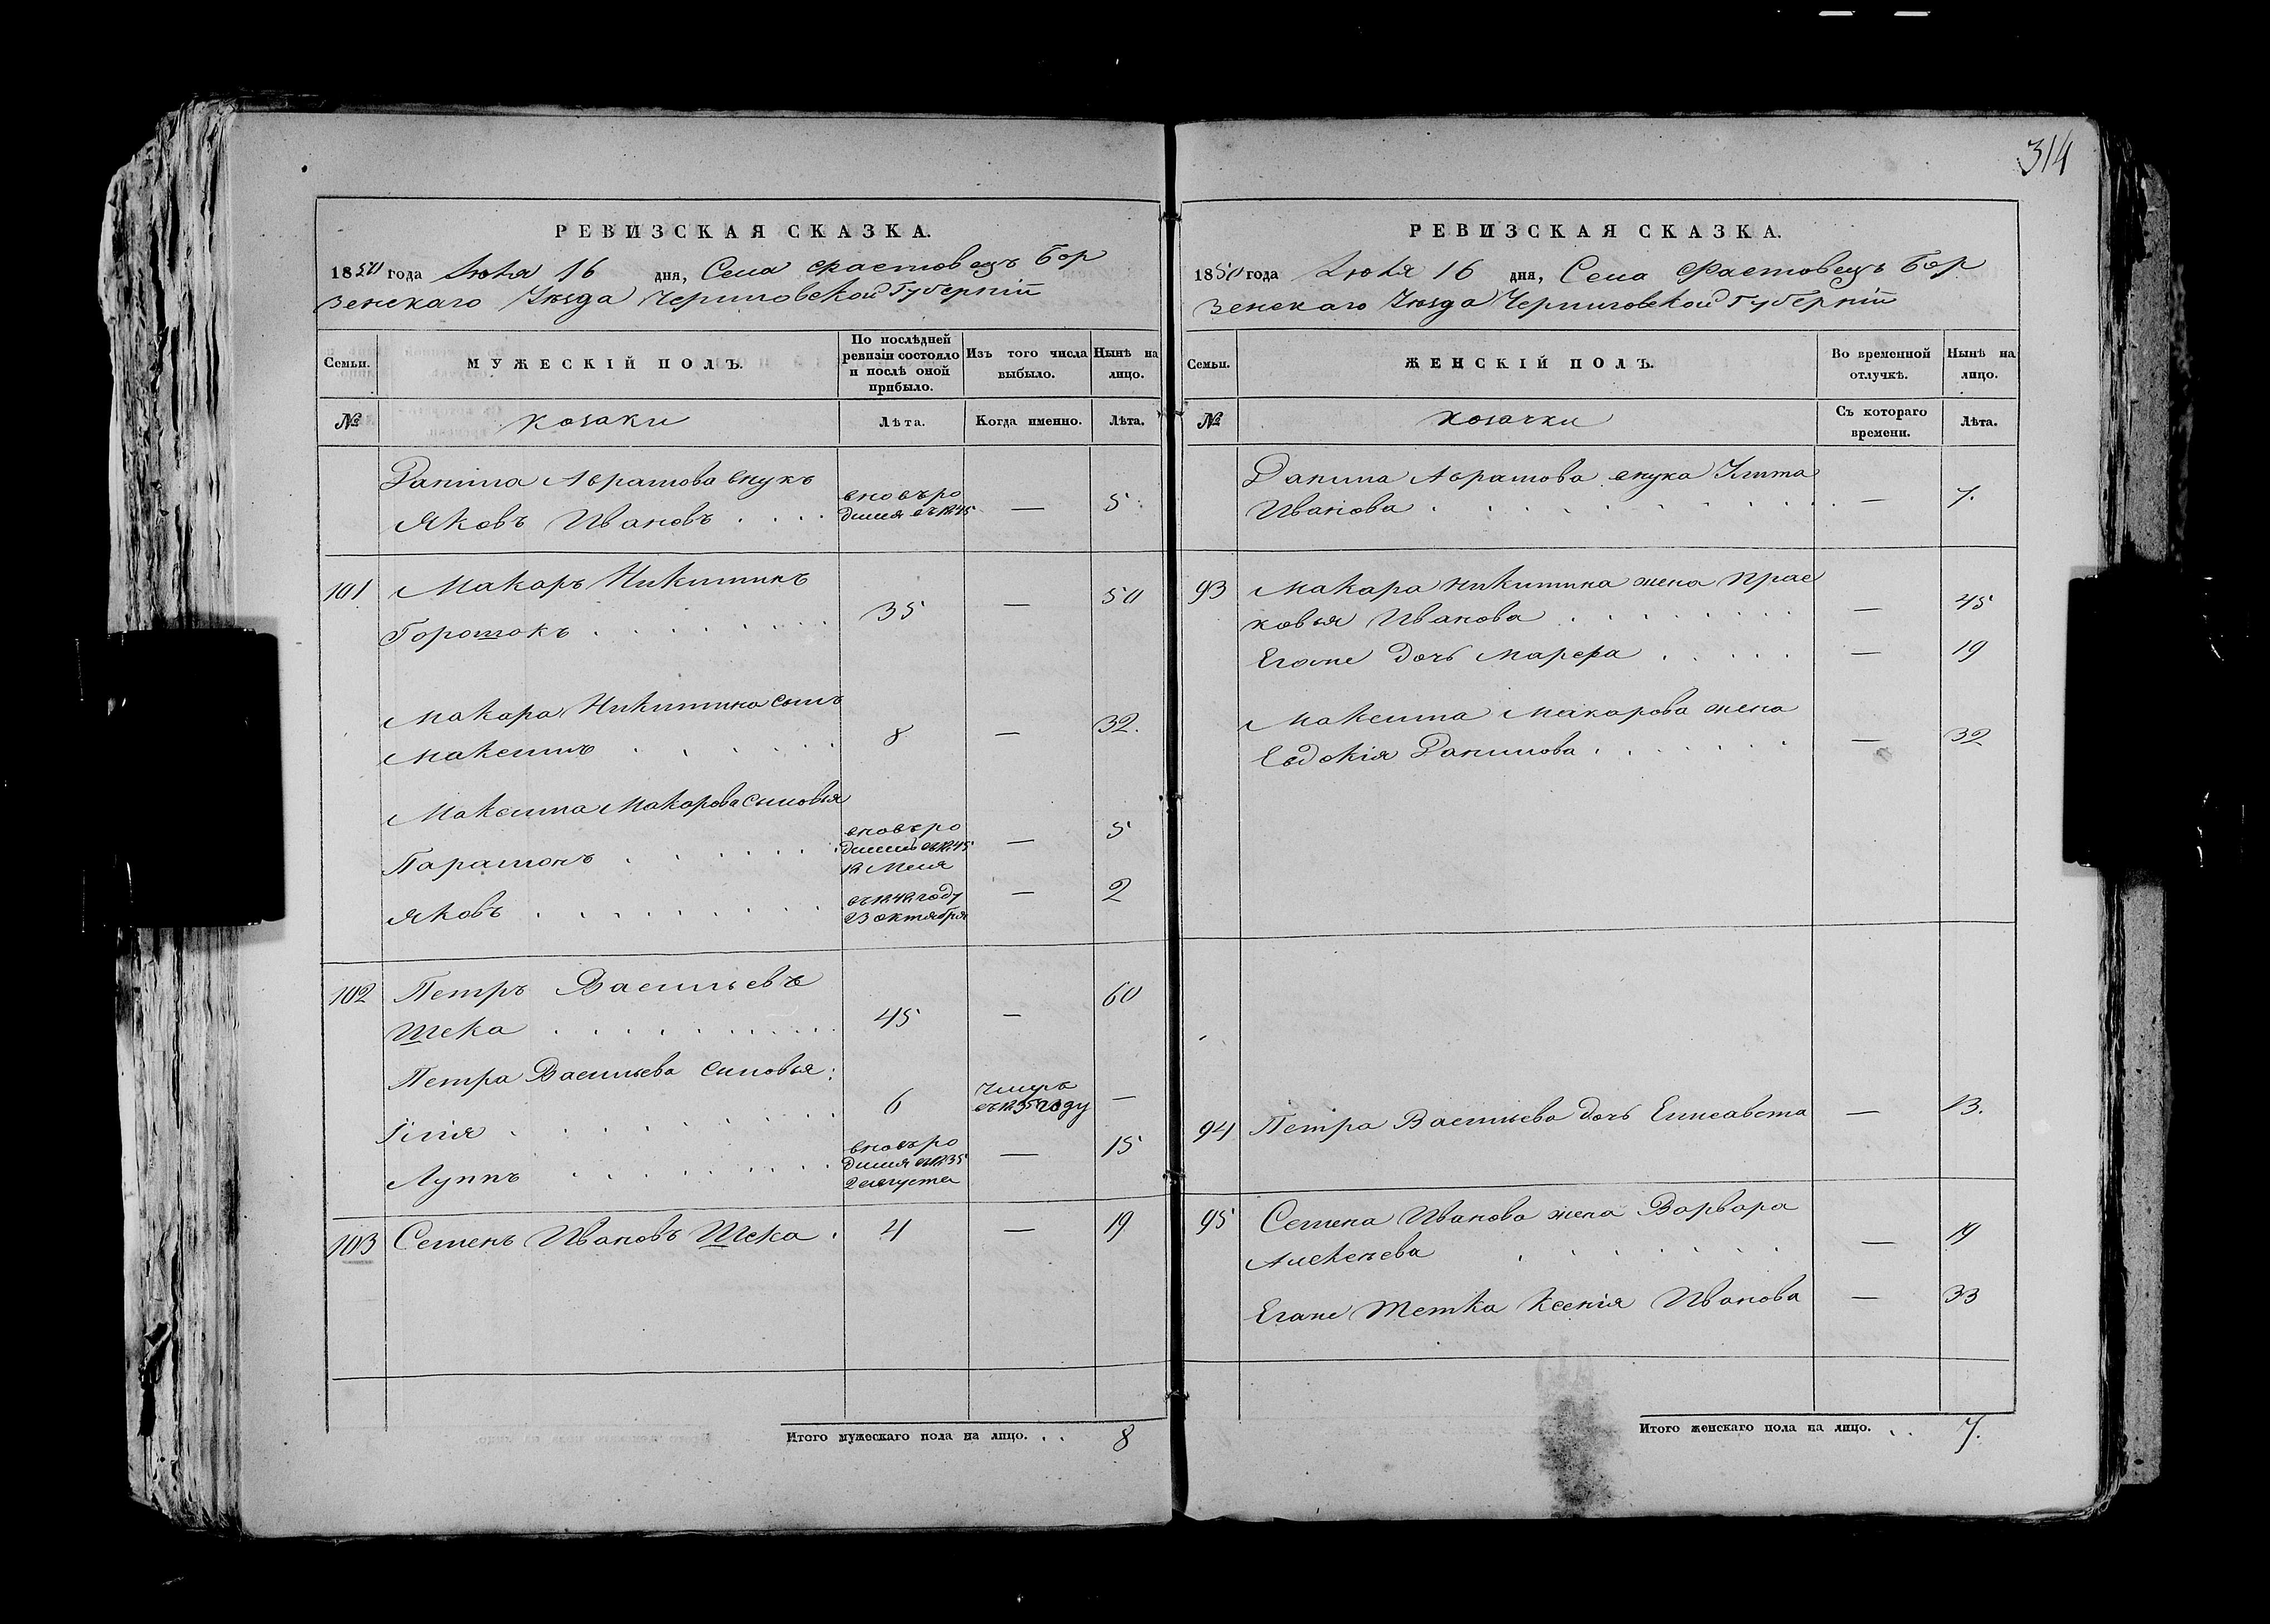 314
РЕВИЗСКАЯ СКАЗКА.
1850 года Июля 16 дня, Села Фастовецъ Бор
зенскаго Уезда Черниговской Губерніи
Семьи.
МУЖЕСКІЙ ПОЛЪ.
По послѣдней ревизіи состояло и послѣ оной прибыло.
Изъ того числа выбыло.
Нынѣ на лицо.
№
козаки
Лѣта.
Когда именно.
Лѣта.
Данила Аврамова внукъ
Яковъ Ивановъ . . . . вновь ро дился въ 1845 — 5
101 Макаръ Никитинъ
Горошокъ . . . . . . . 35 — 50
Макара Никитина сынъ
Максимъ . . . . . . 8 — 32.
Максима Макарова сыновья
Парамонъ . . . . . . вновь ро 1845 — 5
Яковъ . . . . . . . . году 23 октября — 2
102 Петръ Васильевъ
Шека . . . . . . . . . 45 — 60
Петра Васильева сыновья:
Іилія . . . . . . . . . 6 году —
Луппъ . . . . . . . . вновь ро дился 1835 2 августа — 15
103 Семенъ Ивановъ Шека . 4 — 19
Итого мужескаго пола на лицо. . . 8
РЕВИЗСКАЯ СКАЗКА.
1850 года Июля 16 дня, Села Фастовецъ Бор
зенскаго Уезда Черниговской Губерніи
Семьи.
ЖЕНСКІЙ ПОЛЪ.
Во временной отлучкѣ.
Нынѣ на лицо.
№
козачки
Съ котораго времени.
Лѣта.
Данила Аврамова внука Улита
Иванова . . . . . . . . . . — 7.
93 Макара Никитина жена Прас
ковья Иванова . . . . . . . — 45
Егоже дочь Марфа . . . . . — 19
Максима Макарова жена
Евдокія Данилова . . . . . . — 32
94 Петра Васильева дочь Елисавета — 13.
95 Семена Ивановa жена Варвара
Алексеева . . . . . . . — 19
Егоже тетка Ксенія Иванова — 33
Итого женскаго пола на лицо. . . 7.